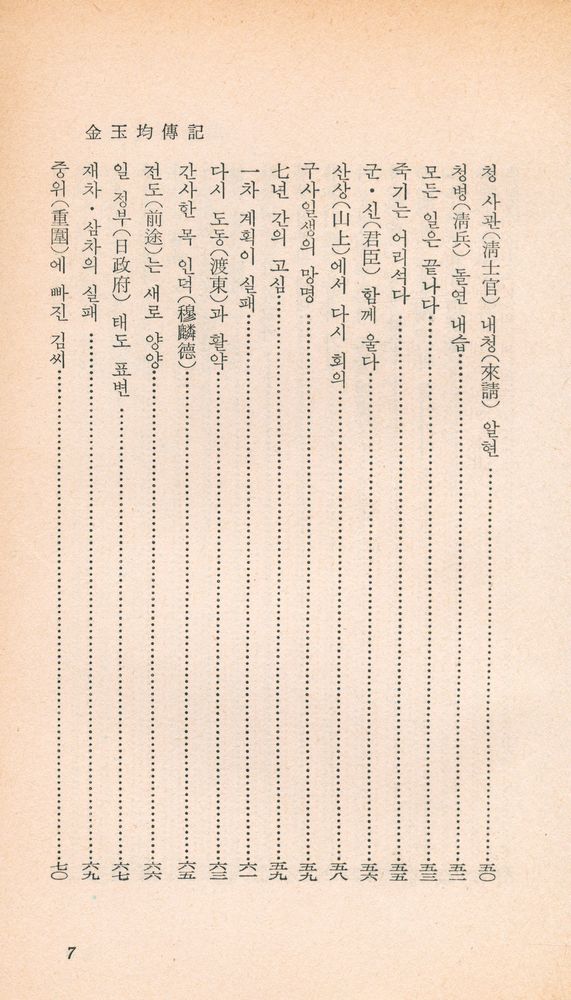 金玉均傳記
청 사관(淸士官) 내청(來請) 알현……五〇
청병(淸兵) 돌연 내습……五二
모든 일은 끝나다……五三
죽기는 어리석다……五五
군·신(君臣) 함께 울다……五六
산상(山上)에서 다시 회의……五八
구사일생의 망명……五九
七년 간의 고심……五九
一차 계획이 실패……六一
다시 도동(渡東)과 활약……六三
간사한 목 인덕(穆麟德)……六五
전도(前途)는 새로 양양……六六
일 정부(日政府) 태도 표변……六七
재차·삼차의 실패……六九
중위(重圍)에 빠진 김씨……七〇
7